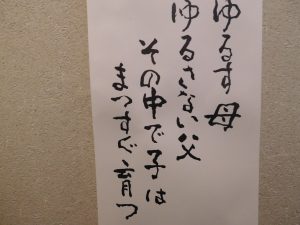 ゆるす母
ゆるさない父
その中で子は
まっすぐ育つ